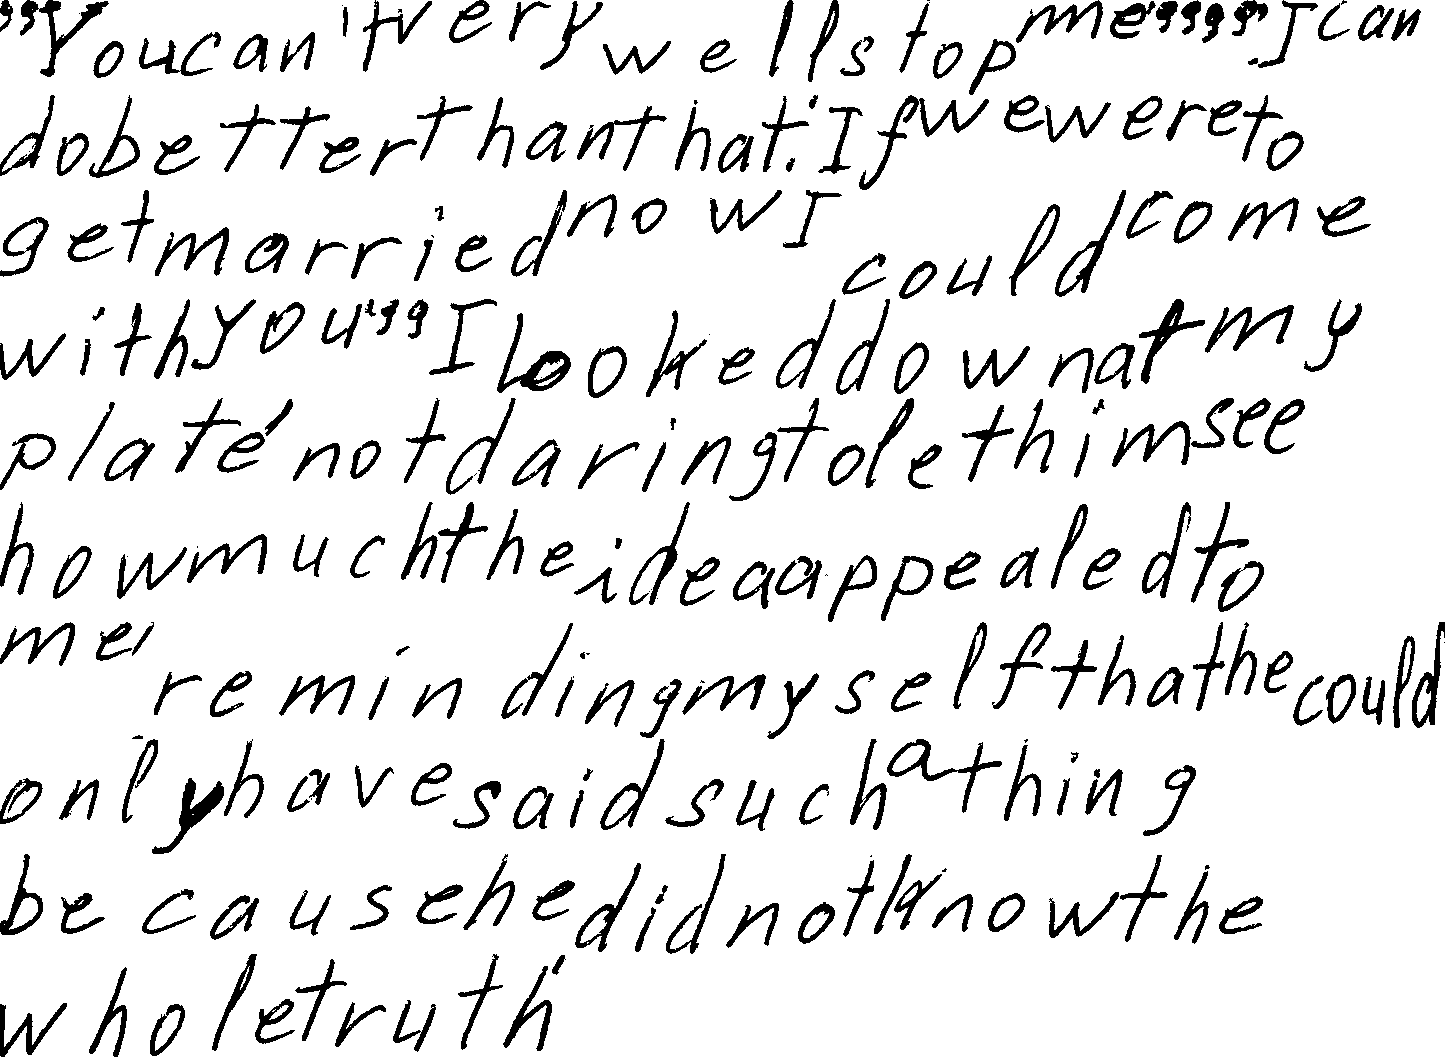 "You can't very well stop me" "I can
do better than that. If we were to
get married now I could come
with you" I looked down at my
plate' not daring to let him see
how much the idea appealed to
me, reminding myself that he could
only have said such a thing
because he did not know the
whole truth'